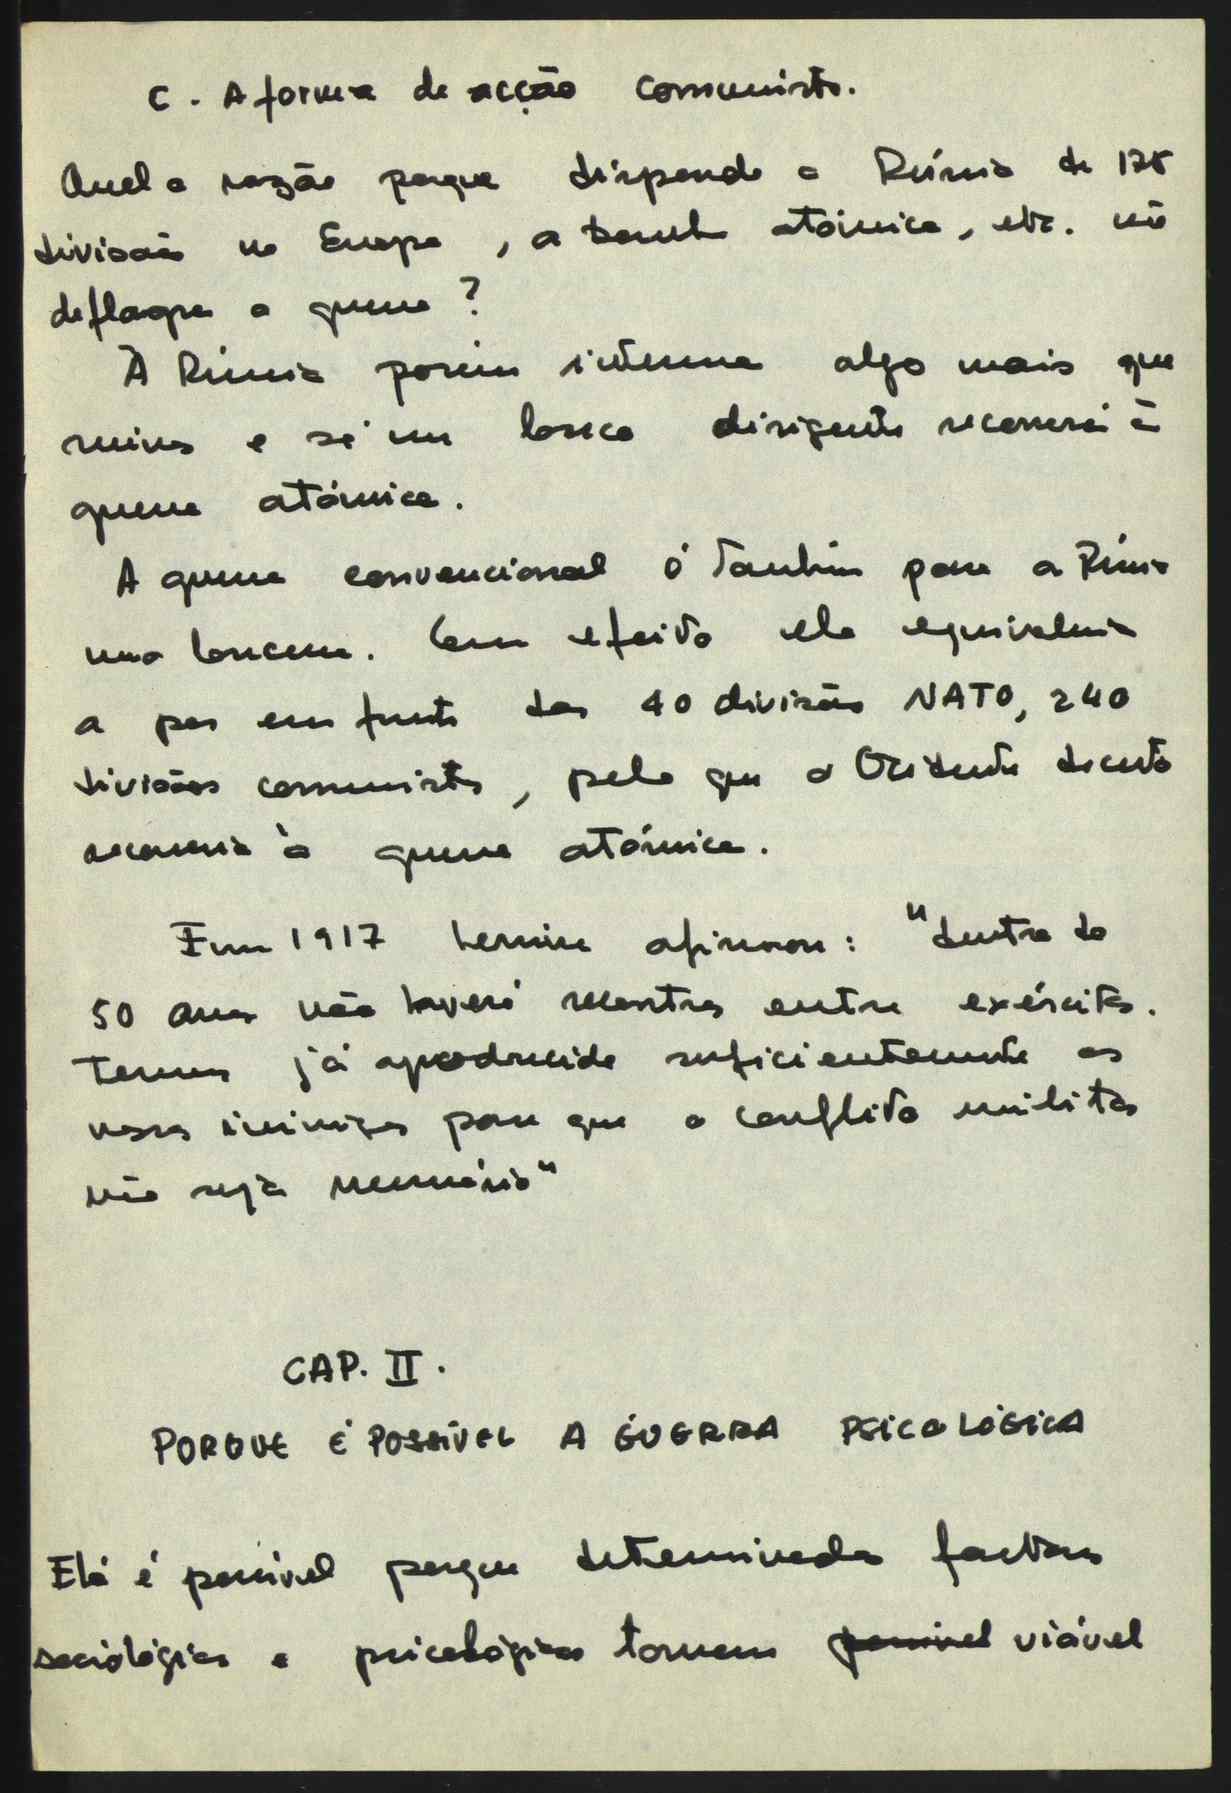 C. A forma de acção comunista.
Qual a razão porque dispondo a Rússia de 175
divisões na Europa, a bomba atómica, etc. não
deflagra a guerra?
À Rússia porém interessa algo mais que
ruinas e só um louco dirigente recorrerá à
guerra atómica.
A guerra convencional é também para a Rússia
uma loucura. Com efeito ela equivaleria
a por em frente das 40 divisões NATO, 240
divisões comunistas, pelo que o Ocidente decerto
recorreria à guerra atómica.
Em 1917 Lenine afirmou: "dentro de
50 anos não haverá recontros entre exércitos.
Teremos já apodrecido suficientemente os
nossos inimigos para que o conflito militar
não seja necessário"
CAP. II.
PORQUE É POSSÍVEL A GUERRA PSICOLÓGICA
Ela é possível porque determinados factores
sociológicos e psicológicos tornam possivel viável